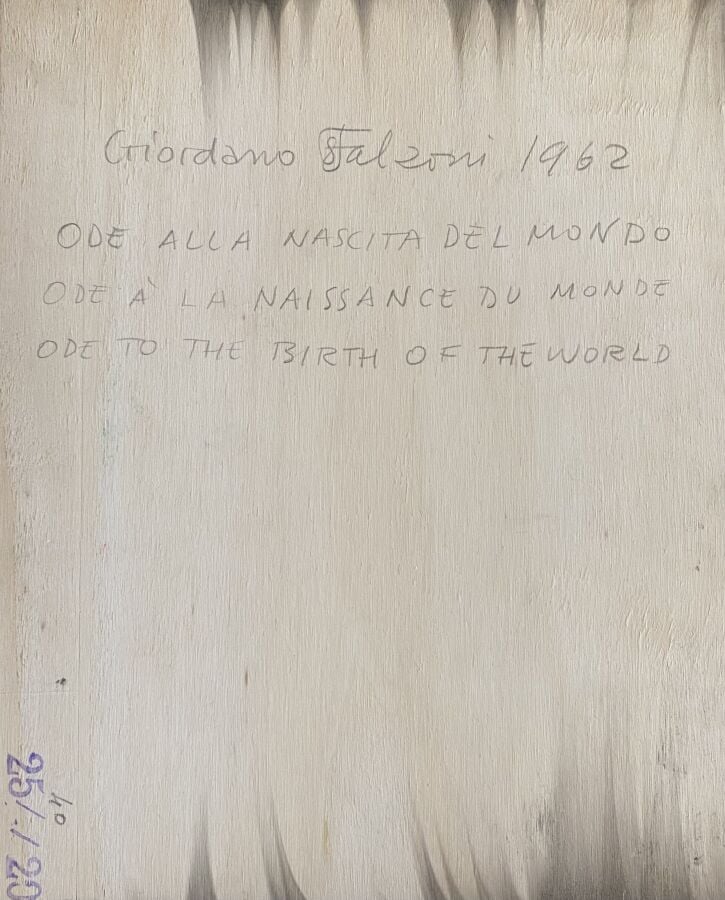 Giordano Falzoni 1962
ODE ALLA NASCITA DEL MONDO
ODE À LA NAISSANCE DU MONDE
ODE TO THE BIRTH OF THE WORLD
40